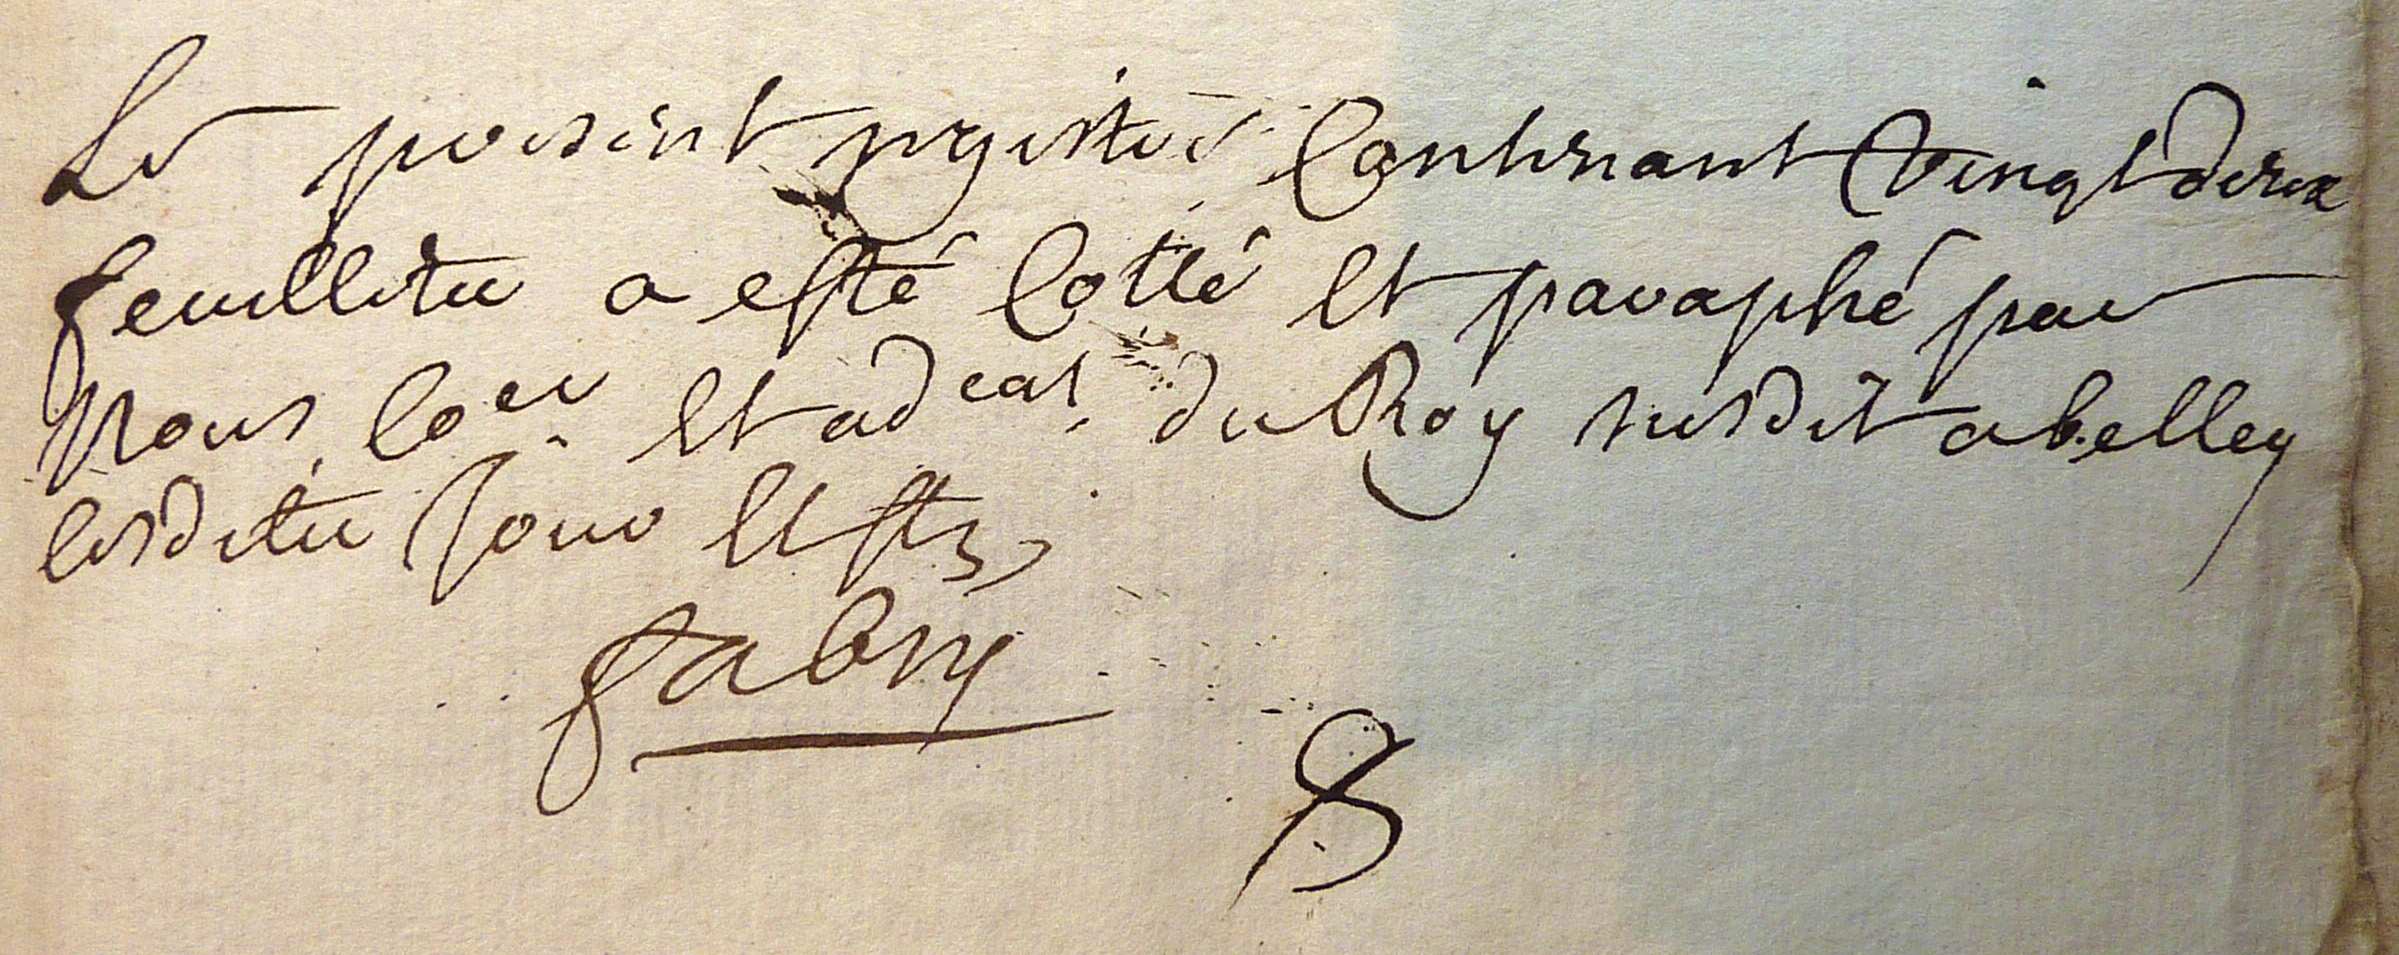 Le present registre Contenant Vingt deux
feuilletes a esté Cotté Et paraphé par
Nous Coer Et adcat. du Roy susdit a belley
Lesdites Jour Et
fabry